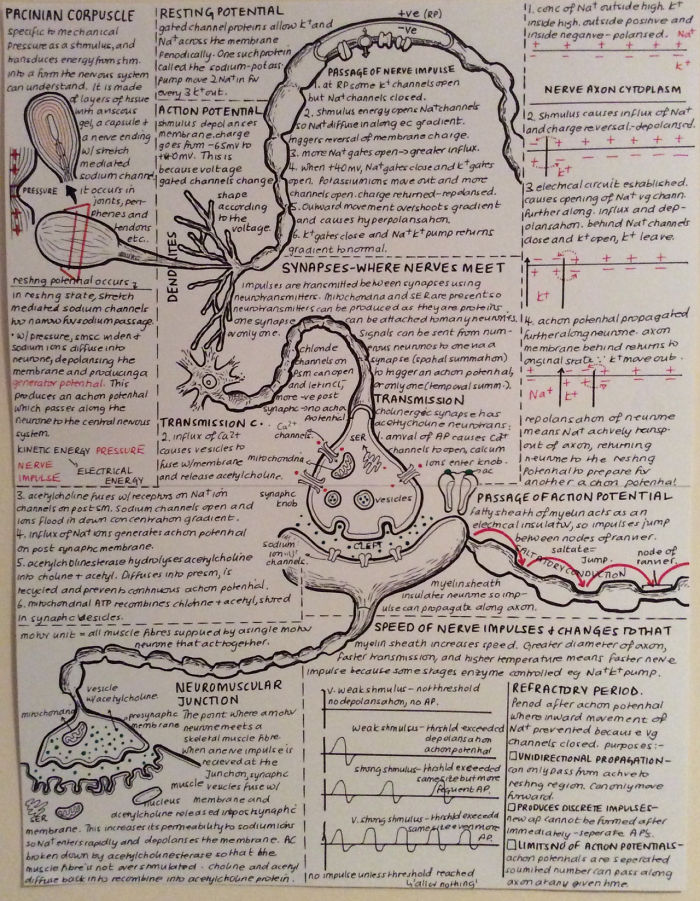 PACINIAN CORPUSCLE
specific to mechanical
pressure as a stimulus, and
transduces energy from stim.
into a form the nervous system
can understand. It is made
of layers of tissue
with a viscous
gel, a capsule +
a nerve ending
w/ stretch
mediated
sodium channel
it occurs in
joints, peri-
phenes and
tendons
etc.
PRESSURE
resting potential occurs
in resting state, stretch
mediated sodium channels
too narrow for sodium passage.
• w/ pressure, smsc widen &
sodium ions diffuse into
neurone, depolarising the
membrane and producing a
generator potential. This
produces an action potential
which passes along the
neurone to the central nervous
system.
KINETIC ENERGY PRESSURE
NERVE
IMPULSE
ELECTRICAL
ENERGY
RESTING POTENTIAL
gated channel proteins allow K⁺ and
Na⁺ across the membrane
periodically. One such protein
called the sodium-potass.
pump move 2 Na⁺ in for
every 3 K⁺ out.
ACTION POTENTIAL
stimulus depolarises
membrane. charge
goes from -65mV to
+40mV. This is
because voltage
gated channels change
shape
according
to the
voltage.
DENDRITES
+ve (RP)
-ve
PASSAGE OF NERVE IMPULSE
1. at RP some K⁺ channels open
but Na⁺ channels closed.
2. stimulus energy opens Na⁺ channels
so Na⁺ diffuse in along ec gradient.
triggers reversal of membrane charge.
3. more Na⁺ gates open → greater influx.
4. When +40mV, Na⁺ gates close and K⁺ gates
open. Potassium ions move out and more
channels open. charge returned - repolarised.
5. Outward movement overshoots gradient
and causes hyperpolarisation.
6. K⁺ gates close and Na⁺ K⁺ pump returns
gradient to normal.
SYNAPSES - WHERE NERVES MEET
impulses are transmitted between synapses using
neurotransmitters. Mitochondria and sER are present so
neurotransmitters can be produced as they are proteins.
one synapse can be attached to many neurones,
or only one. Signals can be sent from num-
erous neurones to one via a
synapse (spatial summation)
to trigger an action potential,
or only one (temporal summ.).
chloride
channels on
PSM can open
and let in Cl,
more -ve post
synaptic → no action
potential
TRANSMISSION
cholinergic synapse has
acetylcholine neurotrans:
1. arrival of AP causes Ca²⁺
channels to open, calcium
ions enter knob.
TRANSMISSION C..
2. influx of Ca²⁺
causes vesicles to
fuse w/ membrane
and release acetylcholine.
Ca²⁺
channels
SER
mitochondria
synaptic
knob
vesicles
CLEFT
sodium
ion
channels
3. acetylcholine fuses w/ receptors on Na⁺ ion
channels on postsm. Sodium channels open and
ions flood in down concentration gradient.
4. influx of Na⁺ ions generates action potential
on post synaptic membrane.
5. acetylcholinesterase hydrolyses acetylcholine
into choline + acetyl. Diffuses into presm, is
recycled and prevents continuous action potential.
6. mitochondrial ATP recombines choline + acetyl, stored
in synaptic vesicles.
1. conc of Na⁺ outside high. K⁺
inside high. outside positive and
inside negative - polarised. Na⁺
+ + + + + +
K⁺
NERVE AXON CYTOPLASM
2. stimulus causes influx of Na⁺
and charge reversal - depolarised.
3. electrical circuit established.
causes opening of Na⁺ vg chann.
further along. influx and dep-
olarisation. behind Na⁺ channels
close and K⁺ open, K⁺ leave.
K⁺
4. action potential propagated
further along neurone. axon
membrane behind returns to
original state ∵ K⁺ move out.
Na⁺
K⁺
repolarisation of neurone
means Na⁺ actively transp.
out of axon, returning
neurone to the resting
potential to prepare for
another action potential
PASSAGE OF ACTION POTENTIAL
fatty sheath of myelin acts as an
electrical insulator, so impulses jump
between nodes of ranvier.
SALTATORY CONDUCTION
saltate =
jump.
node of
ranvier.
myelin sheath
insulates neurone so imp-
ulse can propagate along axon.
motor unit = all muscle fibres supplied by a single motor
neurone that act together.
SPEED OF NERVE IMPULSES + CHANGES TO THAT
myelin sheath increases speed. Greater diameter of axon,
faster transmission, and higher temperature means faster nerve
impulse because some stages enzyme controlled eg Na⁺ K⁺ pump.
NEUROMUSCULAR
JUNCTION
vesicle
w/ acetylcholine.
mitochondria
presynaptic
membrane
The point where a motor
neurone meets a
skeletal muscle fibre.
When a nerve impulse is
recieved at the
junction, synaptic
vesicles fuse w/
membrane and
acetylcholine released into postsynaptic
membrane. This increases its permeability to sodium ions
so Na⁺ enters rapidly and depolarises the membrane. AC
broken down by acetylcholinesterase so that the
muscle fibre is not over stimulated - choline and acetyl
diffuse back into recombine into acetylcholine protein.
muscle
nucleus
SER
v. weak stimulus - no threshold
no depolarisation, no AP.
weak stimulus - thrshld exceeded
depolarisation
action potential
strong stimulus - thrshld exceeded
same size but more
frequent AP.
v. strong stimulus - thrshld exceeded
same size even more
AP.
no impulse unless threshold reached
↳ 'all or nothing'
REFRACTORY PERIOD.
Period after action potential
where inward movement of
Na⁺ prevented because vg
channels closed. purposes:-
□ UNIDIRECTIONAL PROPAGATION -
can only pass from active to
resting region. Can only move
forward.
□ PRODUCES DISCRETE IMPULSES -
new ap cannot be formed after
immediately - seperate APs.
□ LIMITS NO OF ACTION POTENTIALS -
action potentials are seperated
so limited number can pass along
axon at any given time.